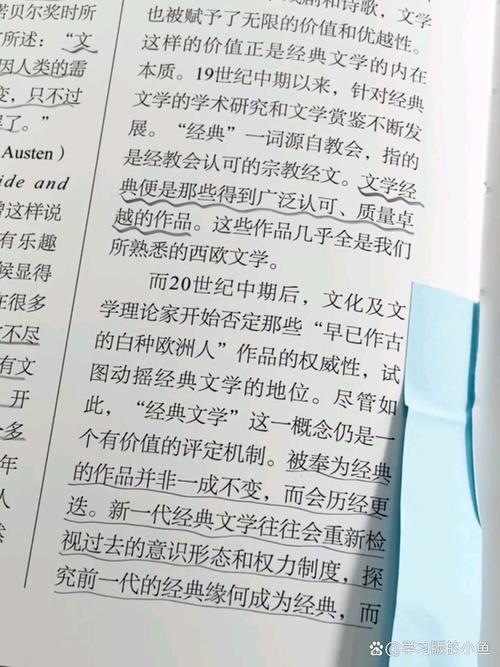 诺贝尔奖时所
所述：“文
因人类的需
变，只不过
了。”
Austen）
ide and
曾这样说
有乐趣
候显得
在很多
文不尽
有文
开
多
年
人
和诗歌，文学
也被赋予了无限的价值和优越性。
这样的价值正是经典文学的内在
本质。19世纪中期以来，针对经典
文学的学术研究和文学赏鉴不断发
展。“经典”一词源自教会，指的
是经教会认可的宗教经文。文学经
典便是那些得到广泛认可、质量卓
越的作品。这些作品几乎全是我们
所熟悉的西欧文学。
而20世纪中期后，文化及文
学理论家开始否定那些“早已作古
的白种欧洲人”作品的权威性，试
图动摇经典文学的地位。尽管如
此，“经典文学”这一概念仍是一
个有价值的评定机制。被奉为经典
的作品并非一成不变，而会历经更
迭。新一代经典文学往往会重新检
视过去的意识形态和权力制度，探
究前一代的经典缘何成为经典，而
百家号/学习版的小鱼